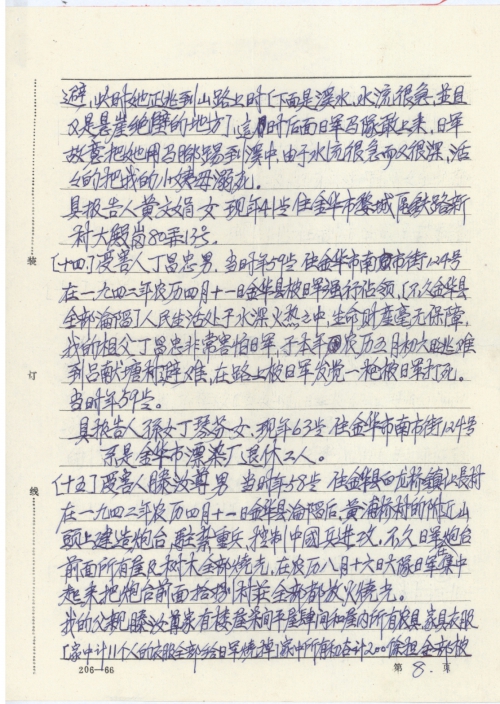 避,此时她正逃到山路上时〔下面是溪水,水流很急,並且
又是悬崖绝壁的地方〕,这时后面日军马队敢上来,日军
故意把她用马脚踢到溪中,由于水流很急而又很深,活
活的把我的小姨母溺死。
具报告人黄文娟 女 现年41岁 住金华市婺城區铁路新
村大殿岗80弄13号。
〔十四〕受害人丁昌忠 男 当时年59岁 住金华市南市街124号
在一九四二年农历四月十一日金华县被日军强行佔领,〔不久金华县
全部淪陷〕人民生活处于水深火热之中,生命财产毫无保障,
我的祖父丁昌忠非常害怕日军,于本年农历五月初六逃难
到吕献塘村避难,在路上被日军发觉一枪被日军打死。
当时年59岁。
具报告人孫女丁琴芬 女 现年63岁 住金华市南市街124号
系是金华市漂染厂退休工人。
〔十五〕受害人滕汝尊 男 当时年58岁 住金县白龙桥镇 村
在一九四二年农历四月十一日金县淪陷后, 村的附近山
頭上建造炮台,驻紮重兵,控制中國兵进攻,不久日军炮台
前面所有屋及树木全部烧光,在农历八月十六日大隊日军集中
起来把炮台前面拾捌村莊全部都放火烧光。
我的父親滕汝尊家有楼屋 间平屋肆间和屋内所有农具,家具衣服
〔家中计11个人的衣服全部给日军烧掉〕家中所有稻谷计200餘担全部被
装
订
线
206—66
第 8. 页